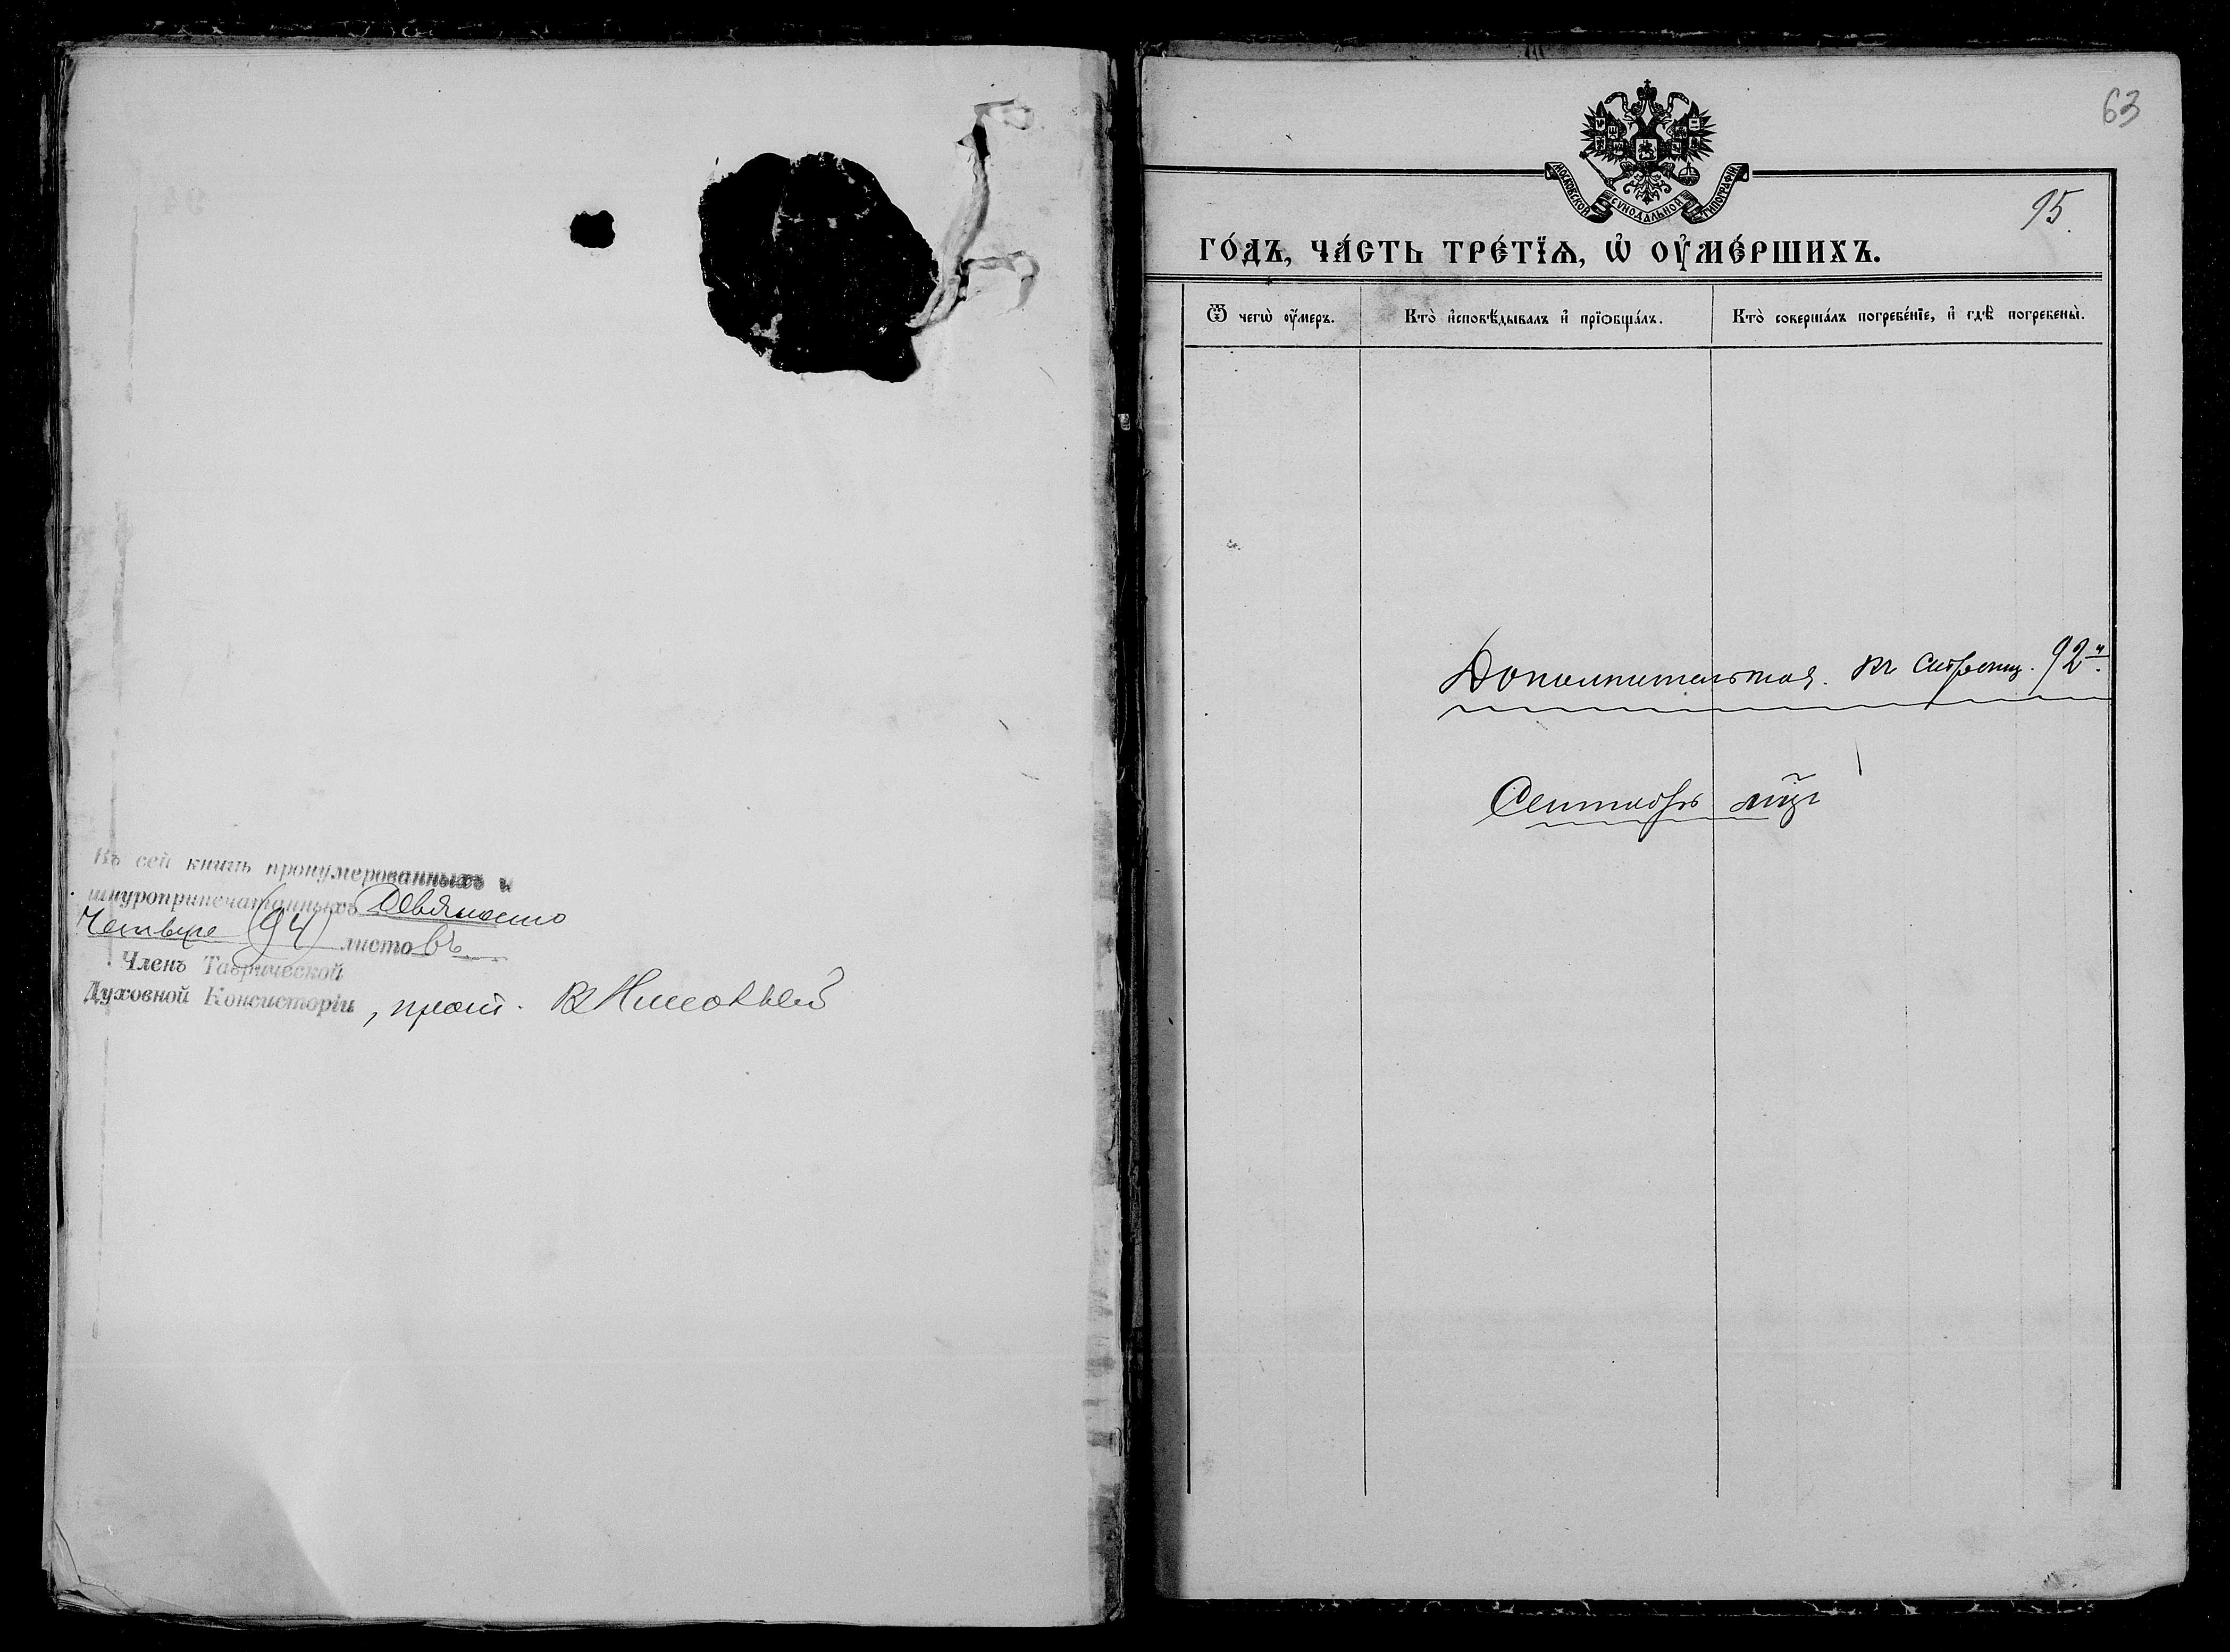 Въ сей книгѣ пронумерованныхъ и
шнуропripечатанныхъ Девяносто
Четыре (94) листовъ
Членъ Таврической
Духовной Консисторіи, прот.
63
МОСКОВСКОЙ СѴНОДАЛЬНОЙ ТИПОГРАФІИ
95.
ГО́ДЪ, ЧА́СТЬ ТРЕ́ТЇѦ, Ѡ҆ ОУ҆МЕ́РШИХЪ.
Ѿ чегѡ̀ оу҆́меръ.
Кто̀ и҆сповѣ́дывалъ и҆ прїѡбща́лъ.
Кто̀ соверша́лъ погребе́нїе, и҆ гдѣ̀ погребены̀.
Дополнительная. къ Страниц. 92й.
Сентябрь мц̃ъ